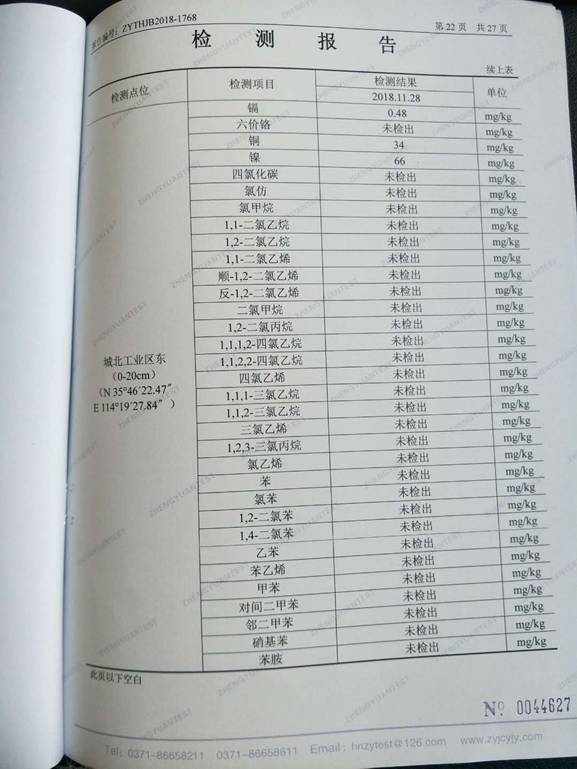 报告编号：ZYTHJB2018-1768
第 22 页 共 27 页
检 测 报 告
续上表
检测点位 检测项目 检测结果 单位
2018.11.28
镉 0.48 mg/kg
六价铬 未检出 mg/kg
铜 34 mg/kg
镍 66 mg/kg
四氯化碳 未检出 mg/kg
氯仿 未检出 mg/kg
氯甲烷 未检出 mg/kg
1,1-二氯乙烷 未检出 mg/kg
1,2-二氯乙烷 未检出 mg/kg
1,1-二氯乙烯 未检出 mg/kg
顺-1,2-二氯乙烯 未检出 mg/kg
反-1,2-二氯乙烯 未检出 mg/kg
二氯甲烷 未检出 mg/kg
1,2-二氯丙烷 未检出 mg/kg
1,1,1,2-四氯乙烷 未检出 mg/kg
1,1,2,2-四氯乙烷 未检出 mg/kg
城北工业区东
（0-20cm）
（N 35°46´22.47″
E 114°19´27.84″ ）
四氯乙烯 未检出 mg/kg
1,1,1-三氯乙烷 未检出 mg/kg
1,1,2-三氯乙烷 未检出 mg/kg
三氯乙烯 未检出 mg/kg
1,2,3-三氯丙烷 未检出 mg/kg
氯乙烯 未检出 mg/kg
苯 未检出 mg/kg
氯苯 未检出 mg/kg
1,2-二氯苯 未检出 mg/kg
1,4-二氯苯 未检出 mg/kg
乙苯 未检出 mg/kg
苯乙烯 未检出 mg/kg
甲苯 未检出 mg/kg
对间二甲苯 未检出 mg/kg
邻二甲苯 未检出 mg/kg
硝基苯 未检出 mg/kg
苯胺 未检出 mg/kg
此页以下空白
№ 0044627
Tel：0371-86658211 0371-86658611 Email：hnzytest@126.com www.zyjcyjy.com
ZHENGYUANTEST